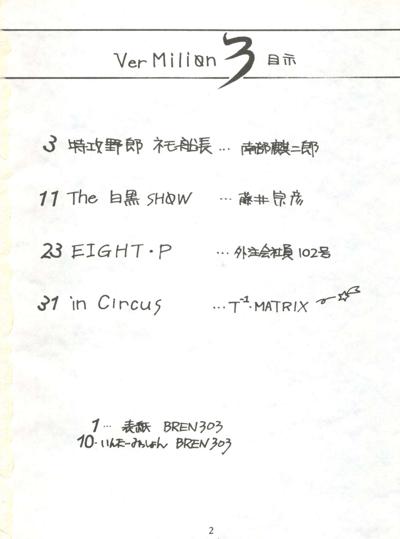 Ver Milion 3 目示
3 特攻野郎 ネモ船長 … 南部麒二郎
11 The 白黒 SHOW … 藤井宗彦
23 EIGHT・P … 外注会社員102号
31 in Circus … T⁻¹・MATRIX
1 … 表紙 BREN303
10・いんたーみっしょん BREN303
2